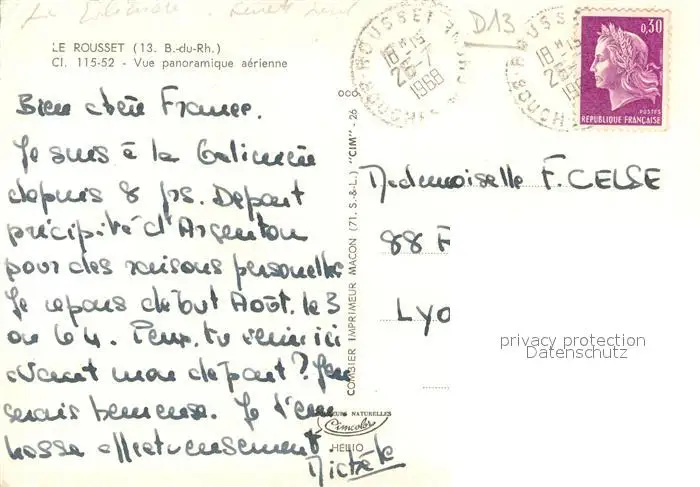 LE ROUSSET (13. B.-du-Rh.)
Cl. 115-52 - Vue panoramique aérienne
Bien chère France.
Je suis à la
depuis 8 jrs. Départ
précipité d'Argenton
pour des raisons personnelles
Je repars début Août. le 3
ou le 4. Peux-tu venir ici
avant mon départ? J'en
serais heureuse. Je t'em
brasse affectueusement
Michèle
COMBIER IMPRIMEUR MACON (71. S.-&-L.) "CIM" - 26
COULEURS NATURELLES
Cimcolor
HELIO
D13
ROUSSET
18H15
26-7
1968
ROUSSET
18H15
26-7
0,30
POSTES
REPUBLIQUE FRANÇAISE
Mademoiselle F. CELSE
88
Lyo
privacy protection
Datenschutz